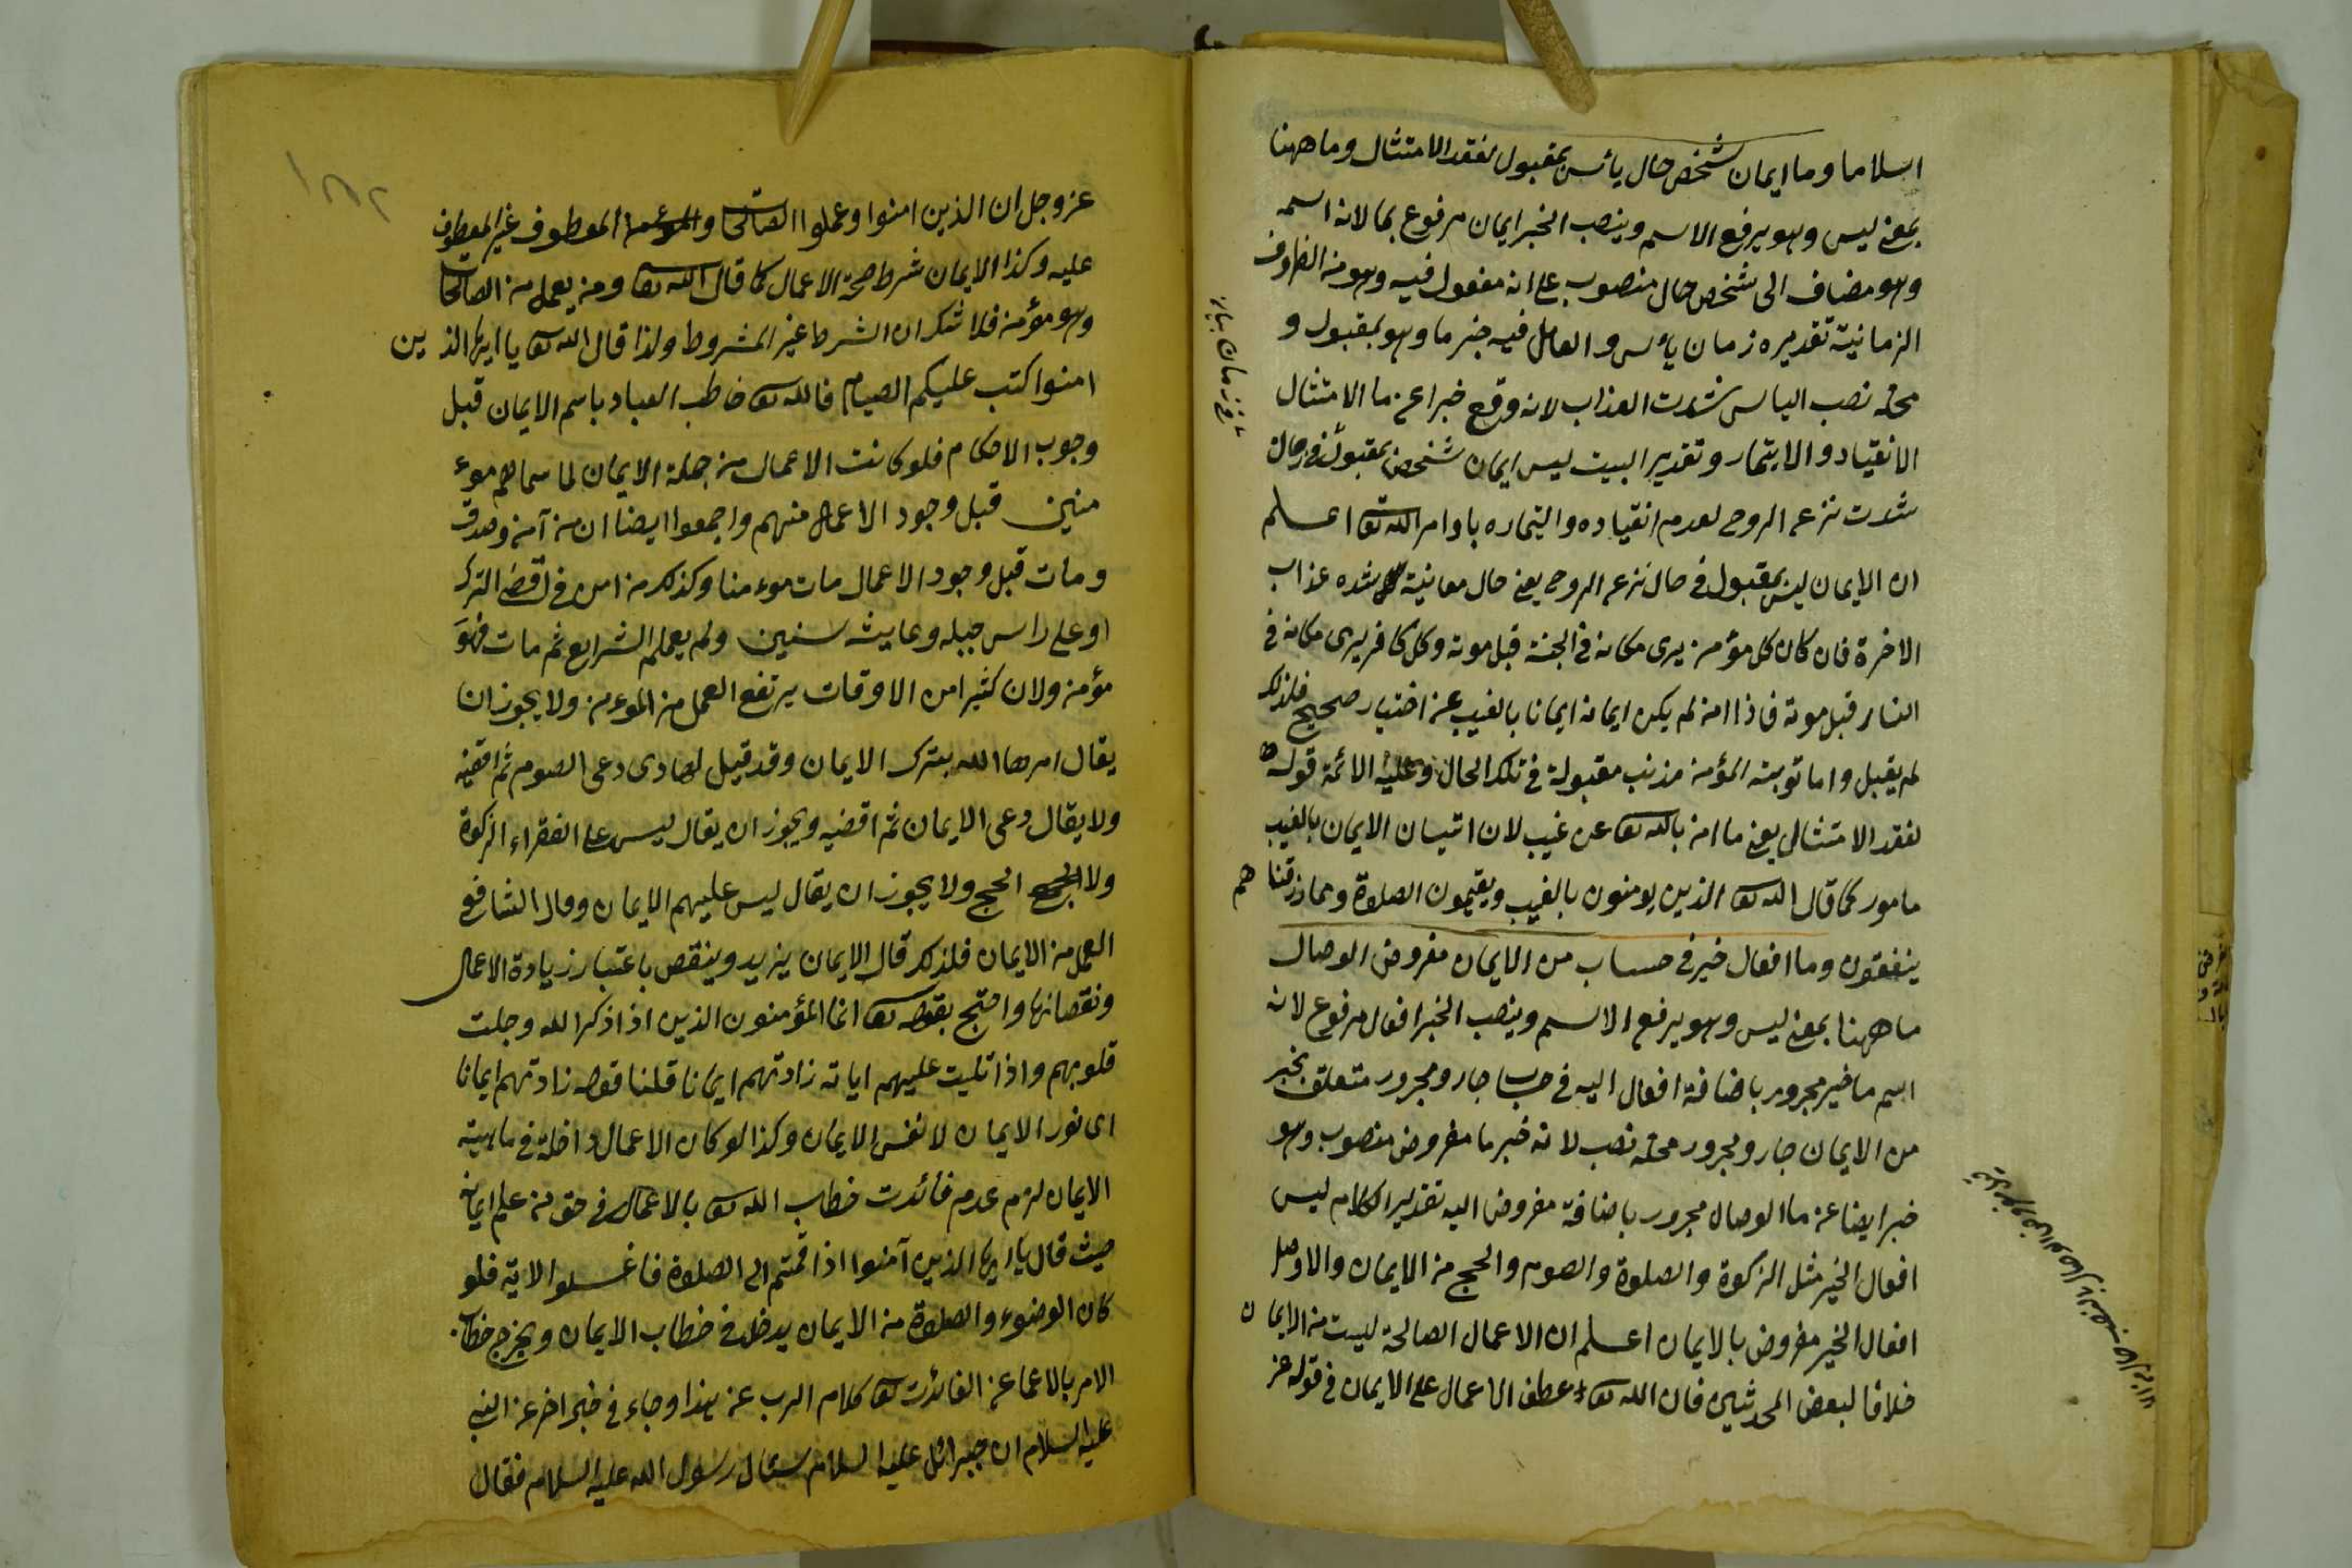 اسلاما وما ايمان شخص حال يأس بمقبول لفقد الامتثال وما ههنا
بمعنى ليس وهو يرفع الاسم وينصب الخبر ايمان مرفوع بما لانه اسمه
وهو مضاف الى شخص حال منصوب على انه مفعول فيه وهو من الظروف
الزمانية تقديره زمان يأس والعامل فيه خبر ما وهو بمقبول و
محله نصب الياس شدت العذاب لانه وقع خبرا عن ما الامتثال
الانقياد والايتمار وتقدير البيت ليس ايمان شخص بمقبول في حالة
شدت نزع الروح لعدم انقياده والتيماره باوامر الله تعا اعلم
ان الايمان ليس بمقبول في حال نزع الروح يعني حال معانية شده عذاب
الاخرة فان كان كل مؤمن يرى مكانه في الجنة قبل موته وكل كافر يرى مكانه في
النار قبل موته فاذا امن لم يكن ايمانه ايمانا بالغيب عن اختيار صحيح فلذلك
لم يقبل واما توبته المؤمن مذنب مقبولة في تلك الحال وعليه الائمة قوله
لفقد الامتثال يعني ما امن بالله تعا عن غيب لان اتيان الايمان بالغيب
مامور كما قال الله تعا الذين يومنون بالغيب ويقيمون الصلوة ومما رزقنا هم
ينفقون وما افعال خير في حساب من الايمان مفروض الوصال
ما ههنا بمعنى ليس وهو يرفع الاسم وينصب الخبر افعال مرفوع لانه
اسم ما خير مجرور باضافة افعال اليه في حساب جار ومجرور متعلق بخبر
من الايمان جار ومجرور محله نصب لانه خبر ما مفروض منصوب وهو
خبر ايضا عن ما الوصال مجرور باضافة مفروض اليه تقدير الكلام ليس
افعال الخير مثل الزكوة والصلوة والصوم والحج من الايمان والاوصل
افعال الخير مفروض بالايمان اعلم ان الاعمال الصالحة ليست من الايمان
خلافا لبعض المحدثين فان الله تعا عطف الاعمال على الايمان في قوله عز
عز وجل ان الذين امنوا وعملوا الصالحات والمعطوف غير المعطوف
عليه وكذا الايمان شرط صحة الاعمال كما قال الله تعا ومن يعمل من الصالحات
وهو مؤمن فلا شك ان الشرط غير المشروط ولذا قال الله تعا يا ايها الذين
امنوا كتب عليكم الصيام فالله تعا خاطب العباد باسم الايمان قبل
وجوب الاحكام فلو كانت الاعمال من جملة الايمان لما سماهم موء
منين قبل وجود الاعمال منهم واجمعوا ايضا ان من آمن وصدق
ومات قبل وجود الاعمال مات موءمنا وكذلك من امن في اقصى الترك
او على راس جبله وعايش سنين ولم يعلم الشرايع ثم مات فهو
مؤمن ولان كثيرا من الاوقات يرتفع العمل من الموءمن ولا يجوز ان
يقال امرها الله بترك الايمان وقد قيل لها دى دعى الصوم ثم اقضيه
ولا يقال دعى الايمان ثم اقضيه ويجوز ان يقال ليس على الفقراء الزكوة
ولا الحج ولا يجوز ان يقال ليس عليهم الايمان وقال الشافعي
العمل من الايمان فلذلك قال الايمان يزيد وينقص باعتبار زيادة الاعمال
ونقصانها واحتج بقوله تعا انما المؤمنون الذين اذا ذكر الله وجلت
قلوبهم واذا تليت عليهم اياته زادتهم ايمانا قلنا قوله زادتهم ايمانا
اى نور الايمان لا نفس الايمان وكذا لو كان الاعمال داخلة في ماهيته
الايمان لزم عدم فائدت خطاب الله تعا بالاعمال في حق من علم ايمانه
حيث قال يا ايها الذين آمنوا اذا قمتم الى الصلوة فاغسلوا الاية فلو
كان الوضوء والصلوة من الايمان يدخل في خطاب الايمان ويخرج خطاب
الامر بالاعما عن الفائدت تعا كلام الرب عن هذا وجاء في خبر اخر عن النبي
عليه السلام ان جبرائل عليه السلام سئال رسول الله عليه السلام فقال